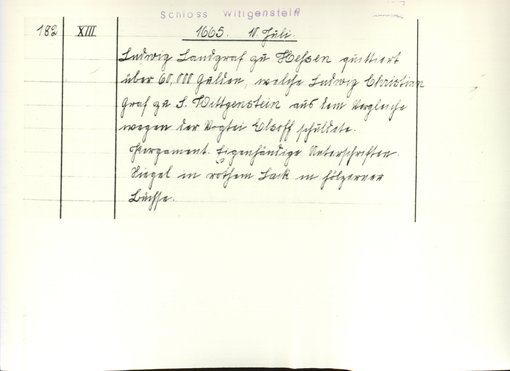 Schloss Wittgenstein
182 XIII. 1665. 10 Juli.
Ludwig Landgraf zu Hessen quittiert
über 60,000 Gulden, welche Ludwig Christian
Graf zu S. Wittgenstein aus dem Vergleiche
wegen der Vogtei Elsoff schuldete.
Pergament. Eigenhändige Unterschriften.
Siegel in rothem Lack in hölzerner
Büchse.